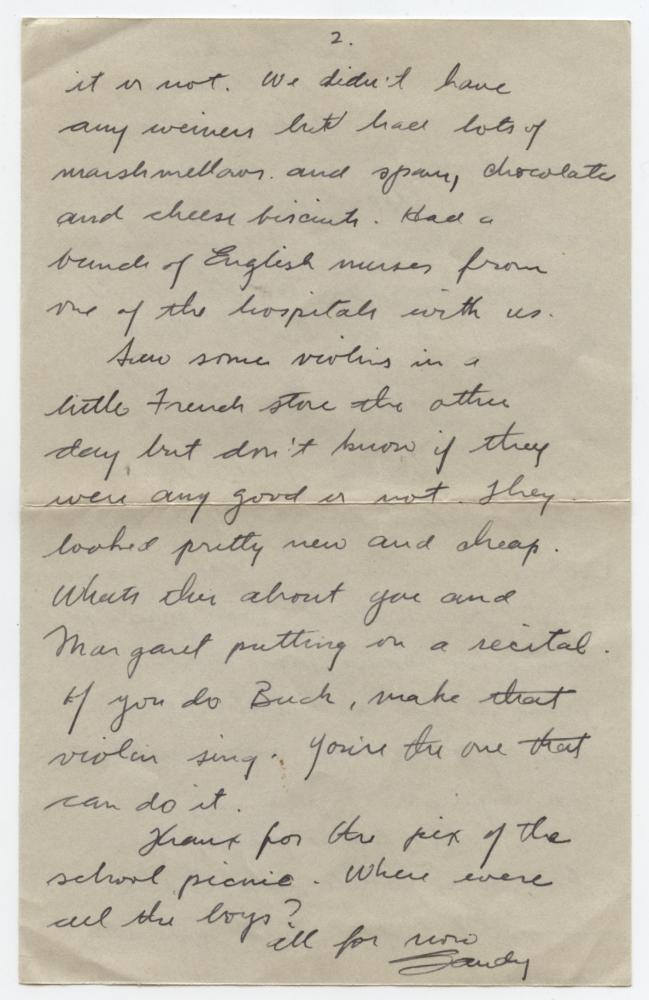 2.
it is not. We didn't have
any weiners but had lots of
marshmellows and spam, chocolate
and cheese biscuits. Had a
bunch of English nurses from
one of the hospitals with us.
Saw some violins in a
little French store the other
day but don't know if they
were any good or not. They
looked pretty new and cheap.
Whats this about you and
Margaret putting on a recital.
If you do Buck, make that
violin sing. You're the one that
can do it.
Thanx for the pix of the
school picnic. Where were
all the boys?
All for now
Sandy